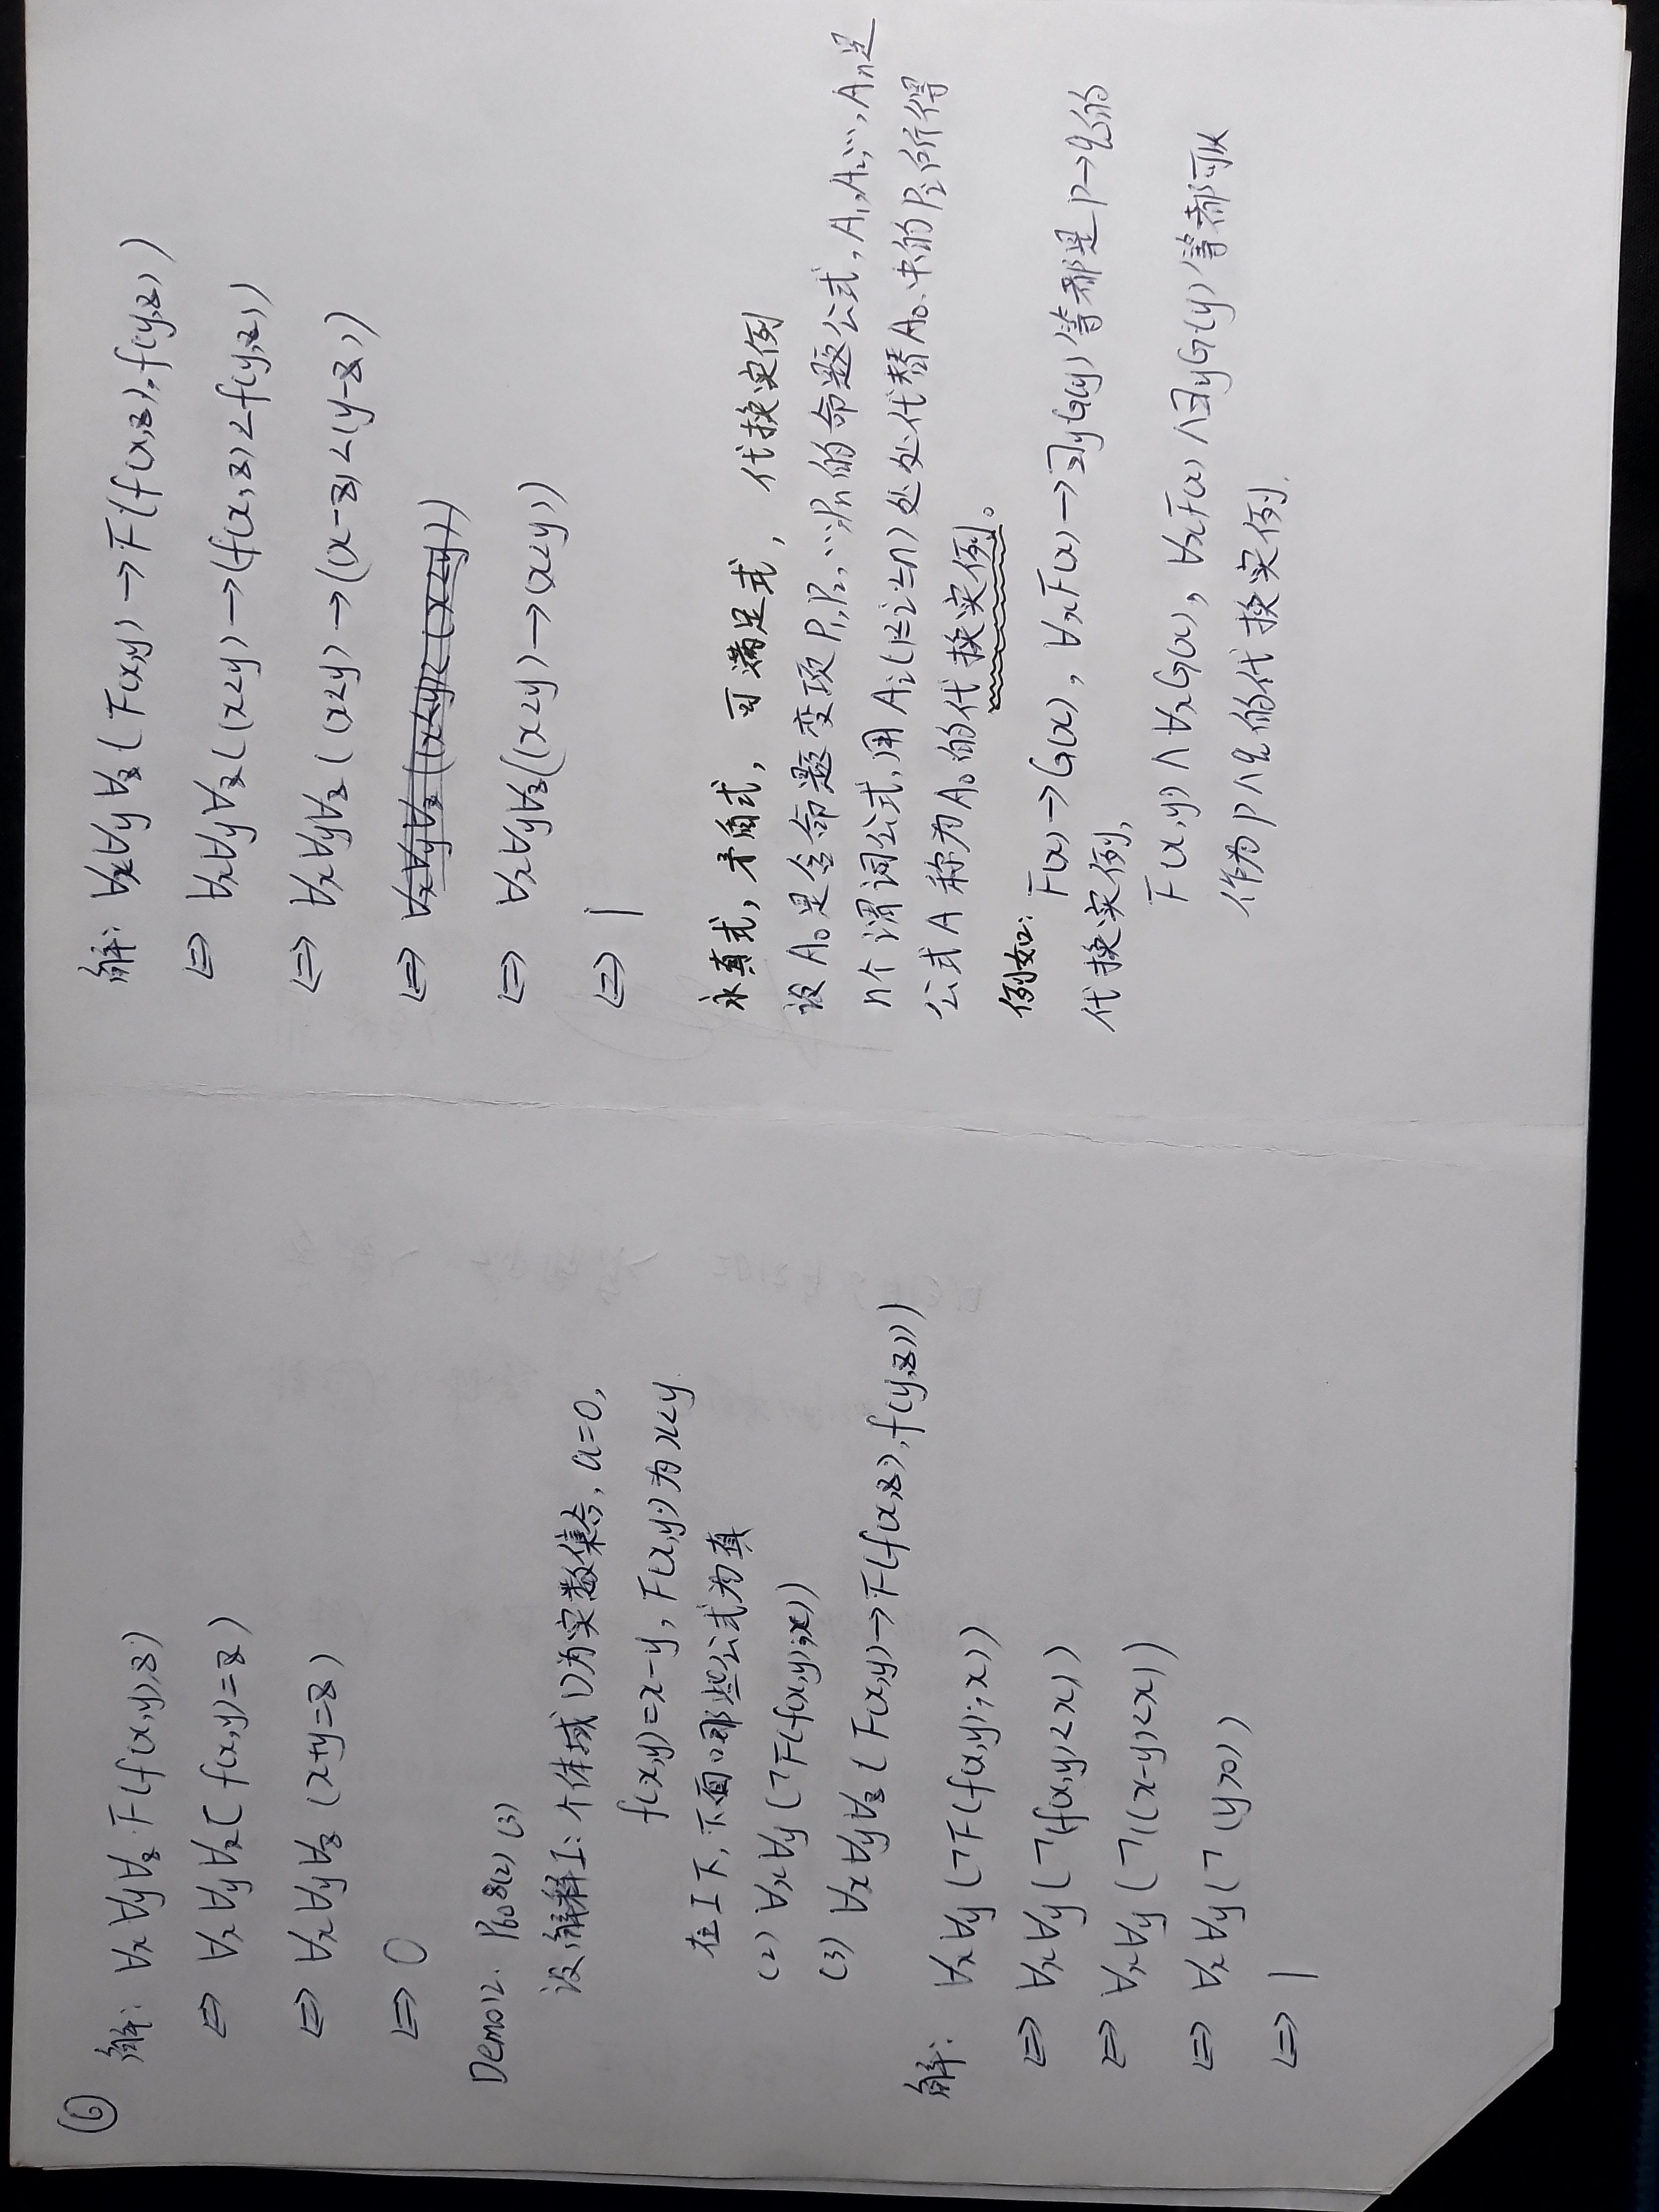 ⑥
解: ∀x∀y∀z F(f(x,y),z)
⇔ ∀x∀y∀z( f(x,y)=z)
⇔ ∀x∀y∀z (x+y=z)
⇔ 0
Demo12. P60 8(2) (3)
设解释I: 个体域D为实数集合, a=0,
f(x,y)=x-y, F(x,y)为x<y.
在I下, 下面哪些公式为真
(2) ∀x∀y(¬F(f(x,y),x))
(3) ∀x∀y∀z( F(x,y)→F(f(x,z),f(y,z)))
解: ∀x∀y(¬F(f(x,y),x))
⇔ ∀x∀y(¬(f(x,y)<x))
⇔ ∀x∀y(¬((x-y)<x))
⇔ ∀x∀y(¬(y>0))
⇔ 1
解: ∀x∀y∀z( F(x,y)→F(f(x,z),f(y,z)))
⇔ ∀x∀y∀z((x<y)→(f(x,z)<f(y,z)))
⇔ ∀x∀y∀z((x<y)→((x-z)<(y-z)))
⇔ ∀x∀y∀z((x<y)<(x<y))
⇔ ∀x∀y∀z((x<y)→(x<y))
⇔ 1
永真式, 矛盾式, 可满足式, 代换实例
设A₀是含命题变项P₁,P₂,…,Pn的命题公式, A₁,A₂,…,An是
n个谓词公式, 用Ai(1≤i≤n)处处代替A₀中的Pi所得
公式A称为A₀的代换实例。
例如:
F(x)→G(x), ∀xF(x)→∃yG(y)等都是p→q的
代换实例,
F(x,y)∧∀xG(x), ∀xF(x)∧∃yG(y)等都可以
作为p∧q的代换实例.